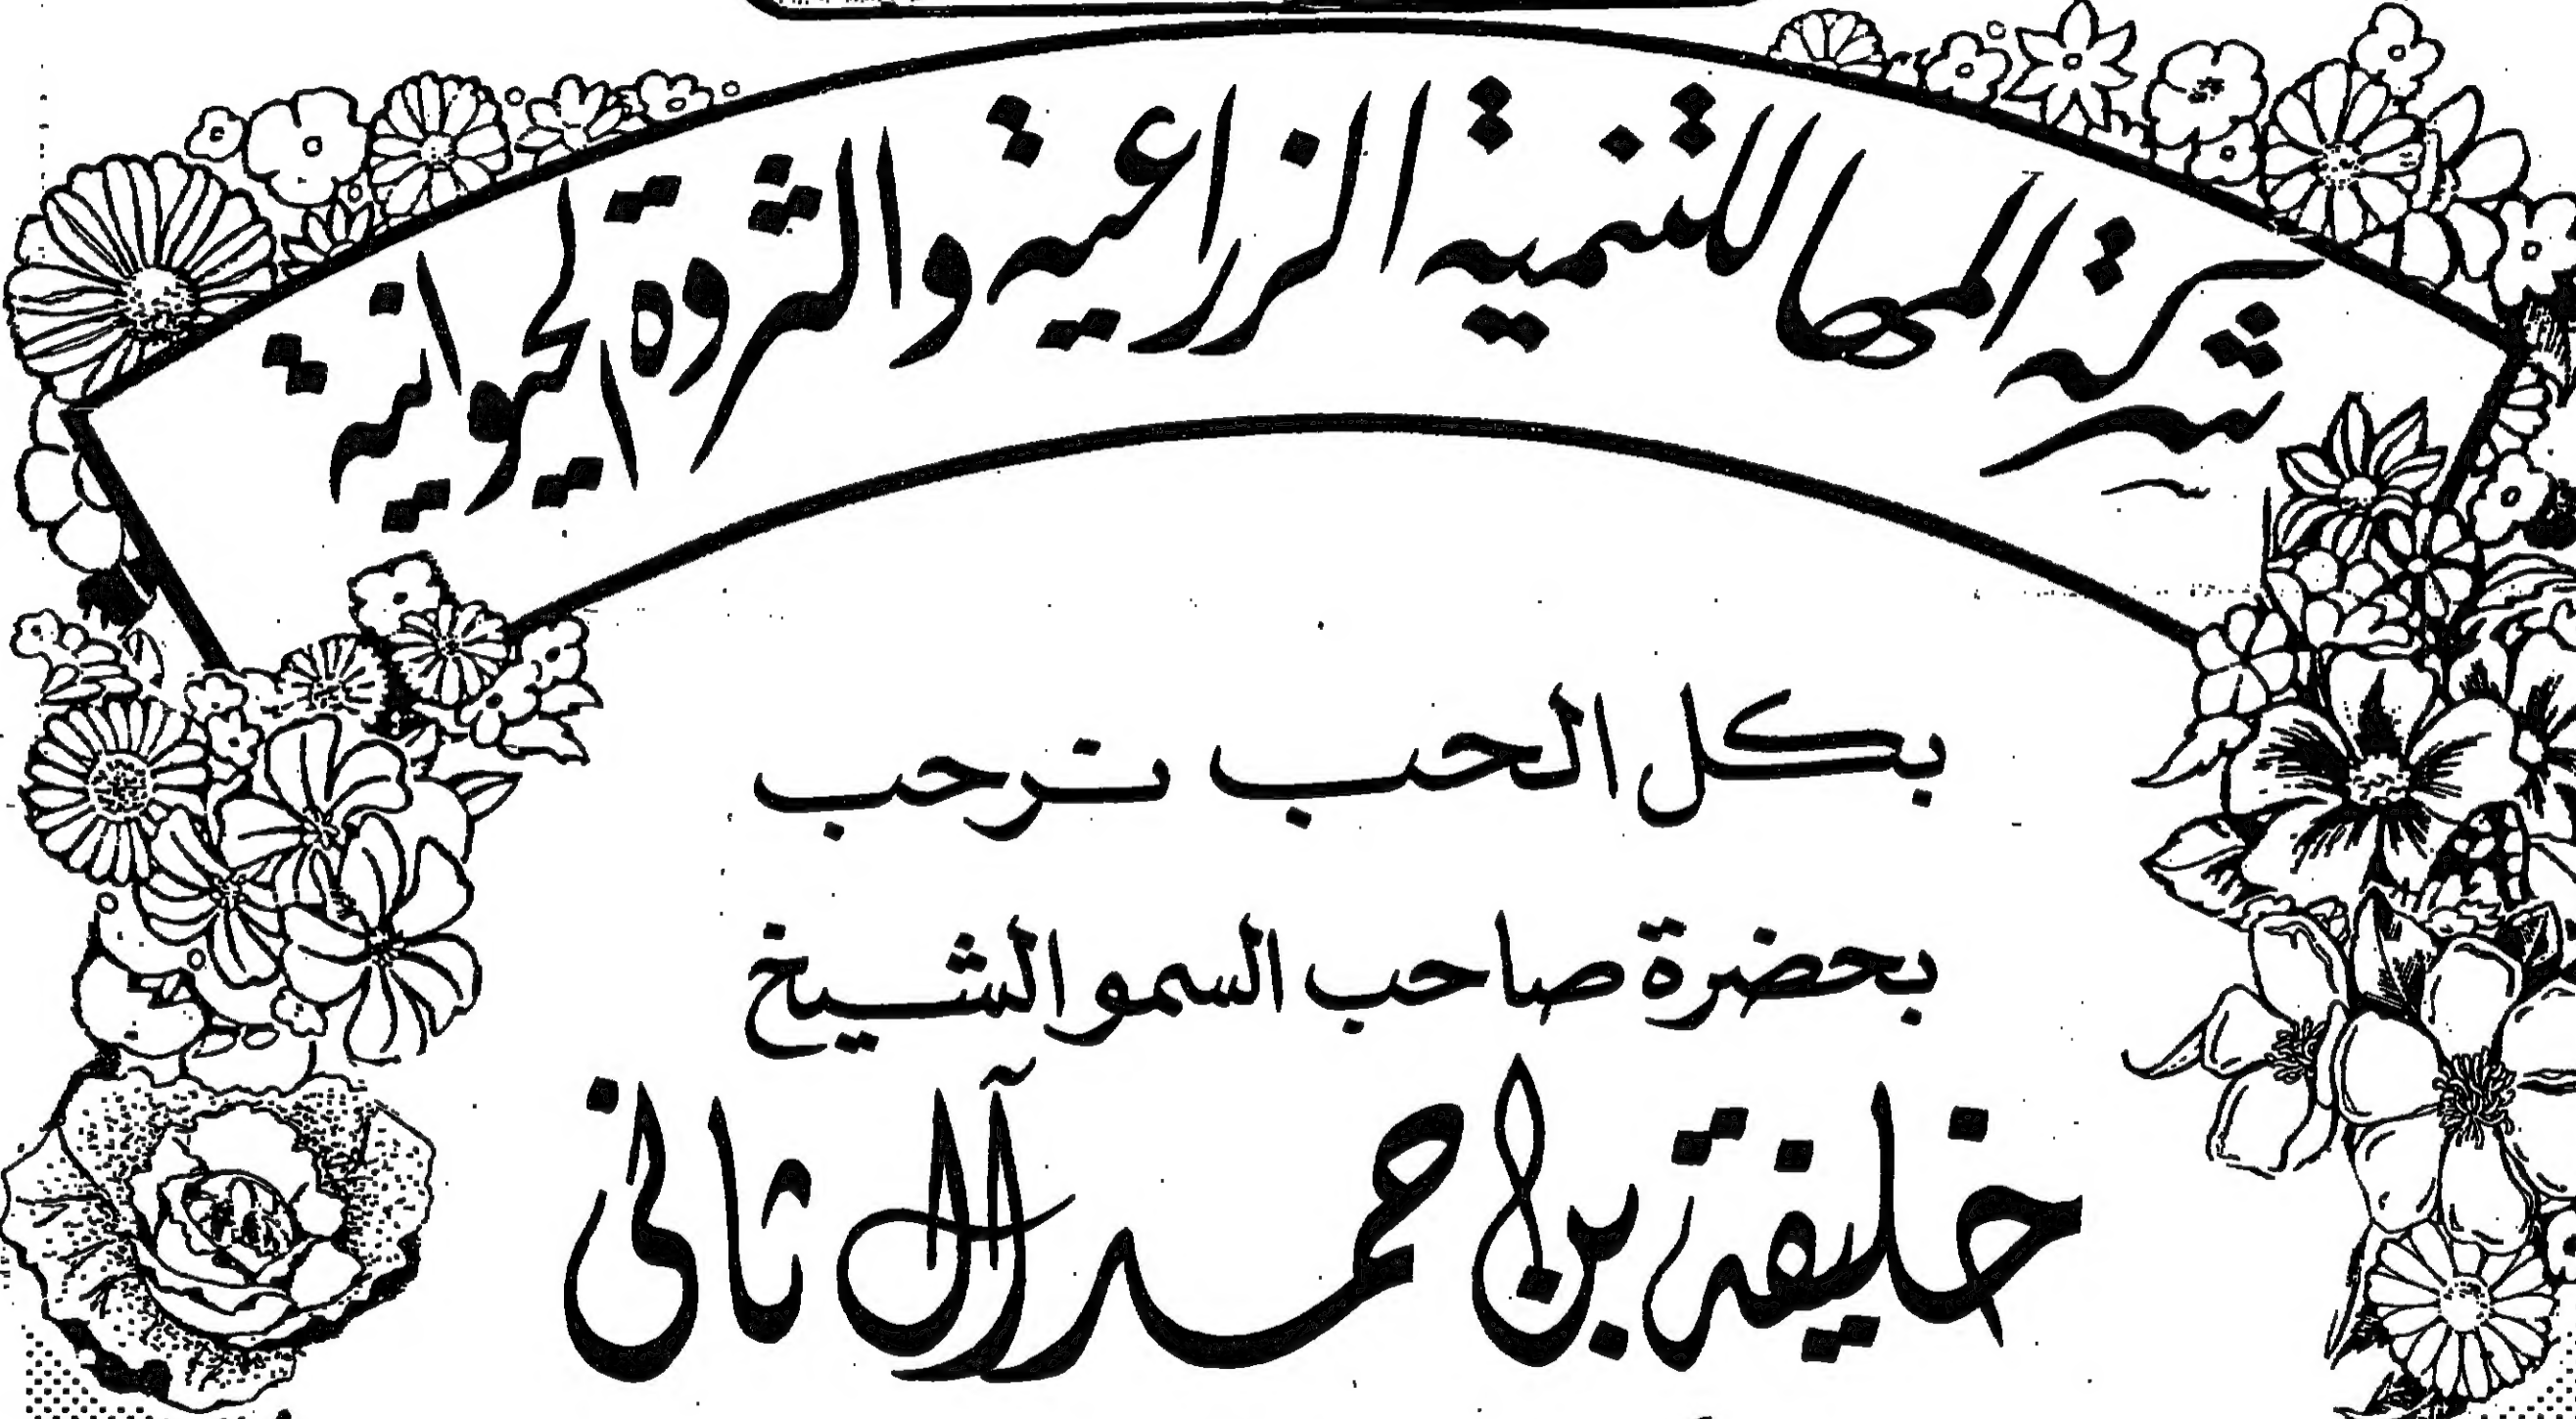 شركة المها للتنمية الزراعية والثروة الحيوانية
بكل الحب ترحب
بحضرة صاحب السمو الشيخ
خليفة بن احمد آل ثاني